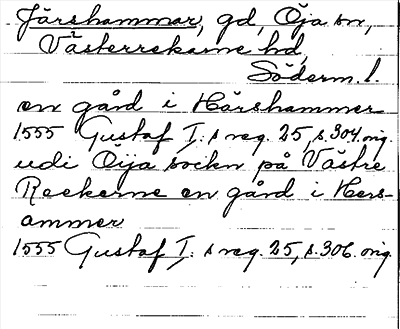 Järshammar, gd, Öja sn,
Västerrekarne hd,
Söderm. l.
en gård i Härshammer
1555 Gustaf I:s reg. 25, s. 304. orig.
udi Öija sockn på Västre
Reckerne en gård i Hers-
ammer
1555 Gustaf I:s reg. 25, s. 306. orig.